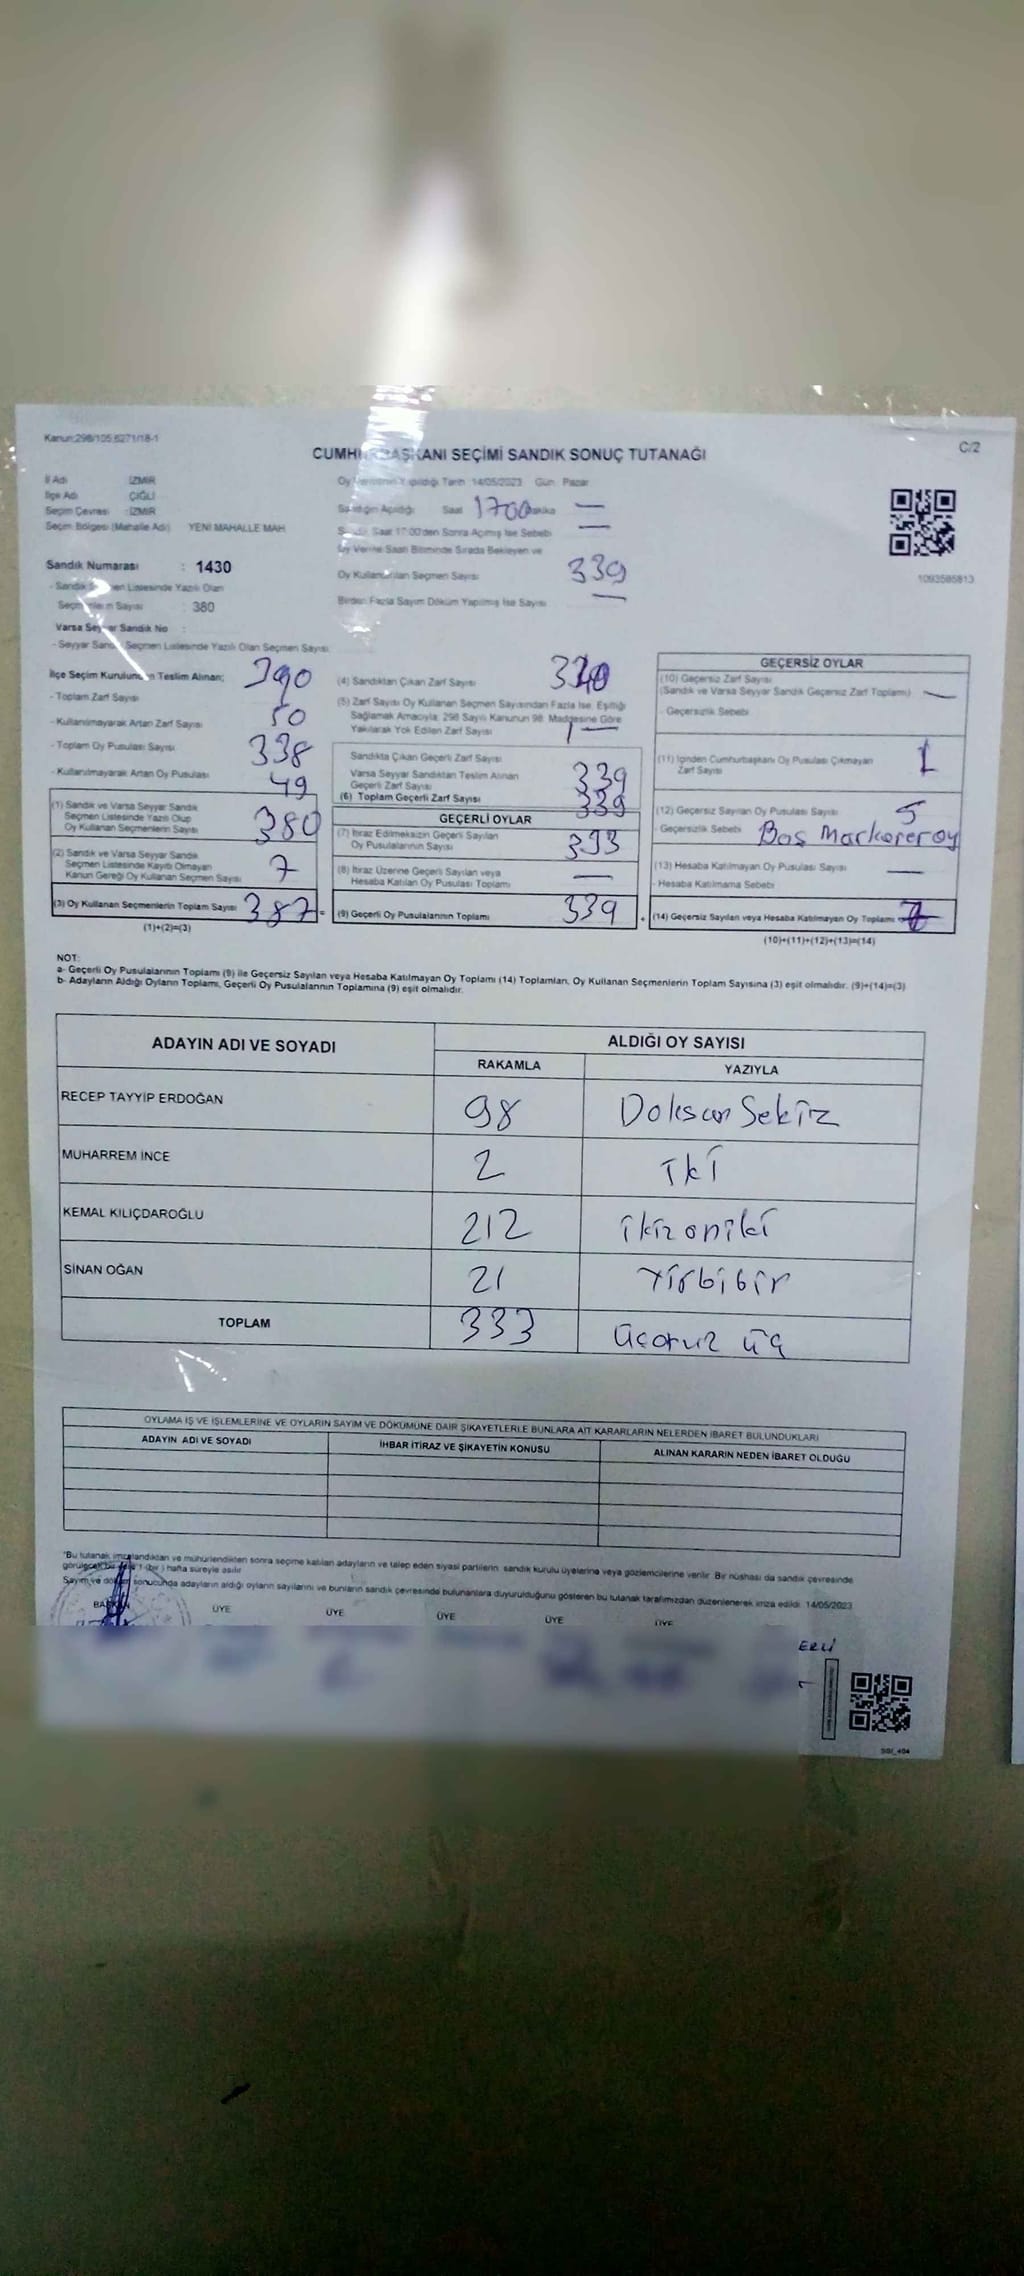 Kanun:298/105,6271/18-1
C/2
CUMHURBAŞKANI SEÇİMİ SANDIK SONUÇ TUTANAĞI
İl Adı : İZMİR
İlçe Adı : ÇİĞLİ
Seçim Çevresi : İZMİR
Seçim Bölgesi (Mahalle Adı) YENİ MAHALLE MAH.
Sandık Numarası : 1430
- Sandık Seçmen Listesinde Yazılı Olan
Seçmenlerin Sayısı : 380
Varsa Seyyar Sandık No :
- Seyyar Sandık Seçmen Listesinde Yazılı Olan Seçmen Sayısı:
Oy Verilme Yapıldığı Tarih 14/05/2023 Gün Pazar
Sandığın Açıldığı Saat 1700 Dakika —
Sandık Saat 17:00'den Sonra Açılmış İse Sebebi —
Oy Verme Saati Bitiminde Sırada Bekleyen ve
Oy Kullandırılan Seçmen Sayısı 339
Birden Fazla Sayım Döküm Yapılmış İse Sayısı —
1093585813
İlçe Seçim Kurulundan Teslim Alınan; 390
- Toplam Zarf Sayısı
- Kullanılmayarak Artan Zarf Sayısı 50
- Toplam Oy Pusulası Sayısı 338
- Kullanılmayarak Artan Oy Pusulası 49
(1) Sandık ve Varsa Seyyar Sandık
Seçmen Listesinde Yazılı Olup
Oy Kullanan Seçmenlerin Sayısı 380
(2) Sandık ve Varsa Seyyar Sandık
Seçmen Listesinde Kayıtlı Olmayan
Kanun Gereği Oy Kullanan Seçmen Sayısı 7
(3) Oy Kullanan Seçmenlerin Toplam Sayısı 387 =
(1)+(2)=(3)
(4) Sandıktan Çıkan Zarf Sayısı
(5) Zarf Sayısı Oy Kullanan Seçmen Sayısından Fazla İse, Eşitliği
Sağlamak Amacıyla; 298 Sayılı Kanunun 98. Maddesine Göre
Yakılarak Yok Edilen Zarf Sayısı 1 —
Sandıkta Çıkan Geçerli Zarf Sayısı
Varsa Seyyar Sandıktan Teslim Alınan
Geçerli Zarf Sayısı 339
(6) Toplam Geçerli Zarf Sayısı 339
GEÇERLİ OYLAR
(7) İtiraz Edilmeksizin Geçerli Sayılan
Oy Pusulalarının Sayısı 333
(8) İtiraz Üzerine Geçerli Sayılan veya
Hesaba Katılan Oy Pusulası Toplamı —
(9) Geçerli Oy Pusulalarının Toplamı 339 +
GEÇERSİZ OYLAR
(10) Geçersiz Zarf Sayısı
(Sandık ve Varsa Seyyar Sandık Geçersiz Zarf Toplamı) —
- Geçersizlik Sebebi
(11) İçinden Cumhurbaşkanı Oy Pusulası Çıkmayan
Zarf Sayısı 1
(12) Geçersiz Sayılan Oy Pusulası Sayısı 5
- Geçersizlik Sebebi Bos
(13) Hesaba Katılmayan Oy Pusulası Sayısı —
- Hesaba Katılmama Sebebi
(14) Geçersiz Sayılan veya Hesaba Katılmayan Oy Toplamı
(10)+(11)+(12)+(13)=(14)
NOT:
a- Geçerli Oy Pusulalarının Toplamı (9) ile Geçersiz Sayılan veya Hesaba Katılmayan Oy Toplamı (14) Toplamları, Oy Kullanan Seçmenlerin Toplam Sayısına (3) eşit olmalıdır. (9)+(14)=(3)
b- Adayların Aldığı Oyların Toplamı, Geçerli Oy Pusulalarının Toplamına (9) eşit olmalıdır.
ADAYIN ADI VE SOYADI
ALDIĞI OY SAYISI
RAKAMLA YAZIYLA
RECEP TAYYİP ERDOĞAN 98 Doksan Sekiz
MUHARREM İNCE 2 iki
KEMAL KILIÇDAROĞLU 212 ikizoniki
SİNAN OĞAN 21 Yirbibir
TOPLAM 333 üçotuz üç
OYLAMA İŞ VE İŞLEMLERİNE VE OYLARIN SAYIM VE DÖKÜMÜNE DAİR ŞİKAYETLERLE BUNLARA AİT KARARLARIN NELERDEN İBARET BULUNDUKLARI
ADAYIN ADI VE SOYADI İHBAR İTİRAZ VE ŞİKAYETİN KONUSU ALINAN KARARIN NEDEN İBARET OLDUĞU
*Bu tutanak imzalandıktan ve mühürlendikten sonra seçime katılan adayların ve talep eden siyasi partilerin, sandık kurulu üyelerine veya gözlemcilerine verilir. Bir nüshası da sandık çevresinde
görülecek bir yere 1 (bir) hafta süreyle asılır.
Sayım ve döküm sonucunda adayların aldığı oyların sayılarını ve bunların sandık çevresinde bulunanlara duyurulduğunu gösteren bu tutanak tarafımızdan düzenlenerek imza edildi. 14/05/2023
BAŞKAN ÜYE ÜYE ÜYE ÜYE ÜYE
ERLİ